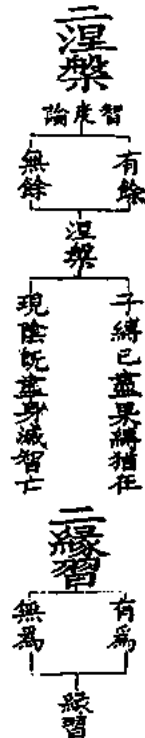 二涅槃
智度論
有餘
無餘
涅槃
子縛已盡果縛猶在
現陰既盡身滅智亡
二緣習
有為
無為
緣習